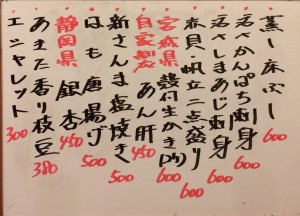 蒸し床ぶし 600
活〆かんぱち刺身 600
活〆しまあじ刺身 600
赤貝・帆立二点盛り 600
宮城県 殻付生かき(両) 600
自家製 あん肝 450
新さんま塩焼き 500
はも唐揚げ 500
静岡県 銀杏 450
あきた香り枝豆 380
エシャレット 300